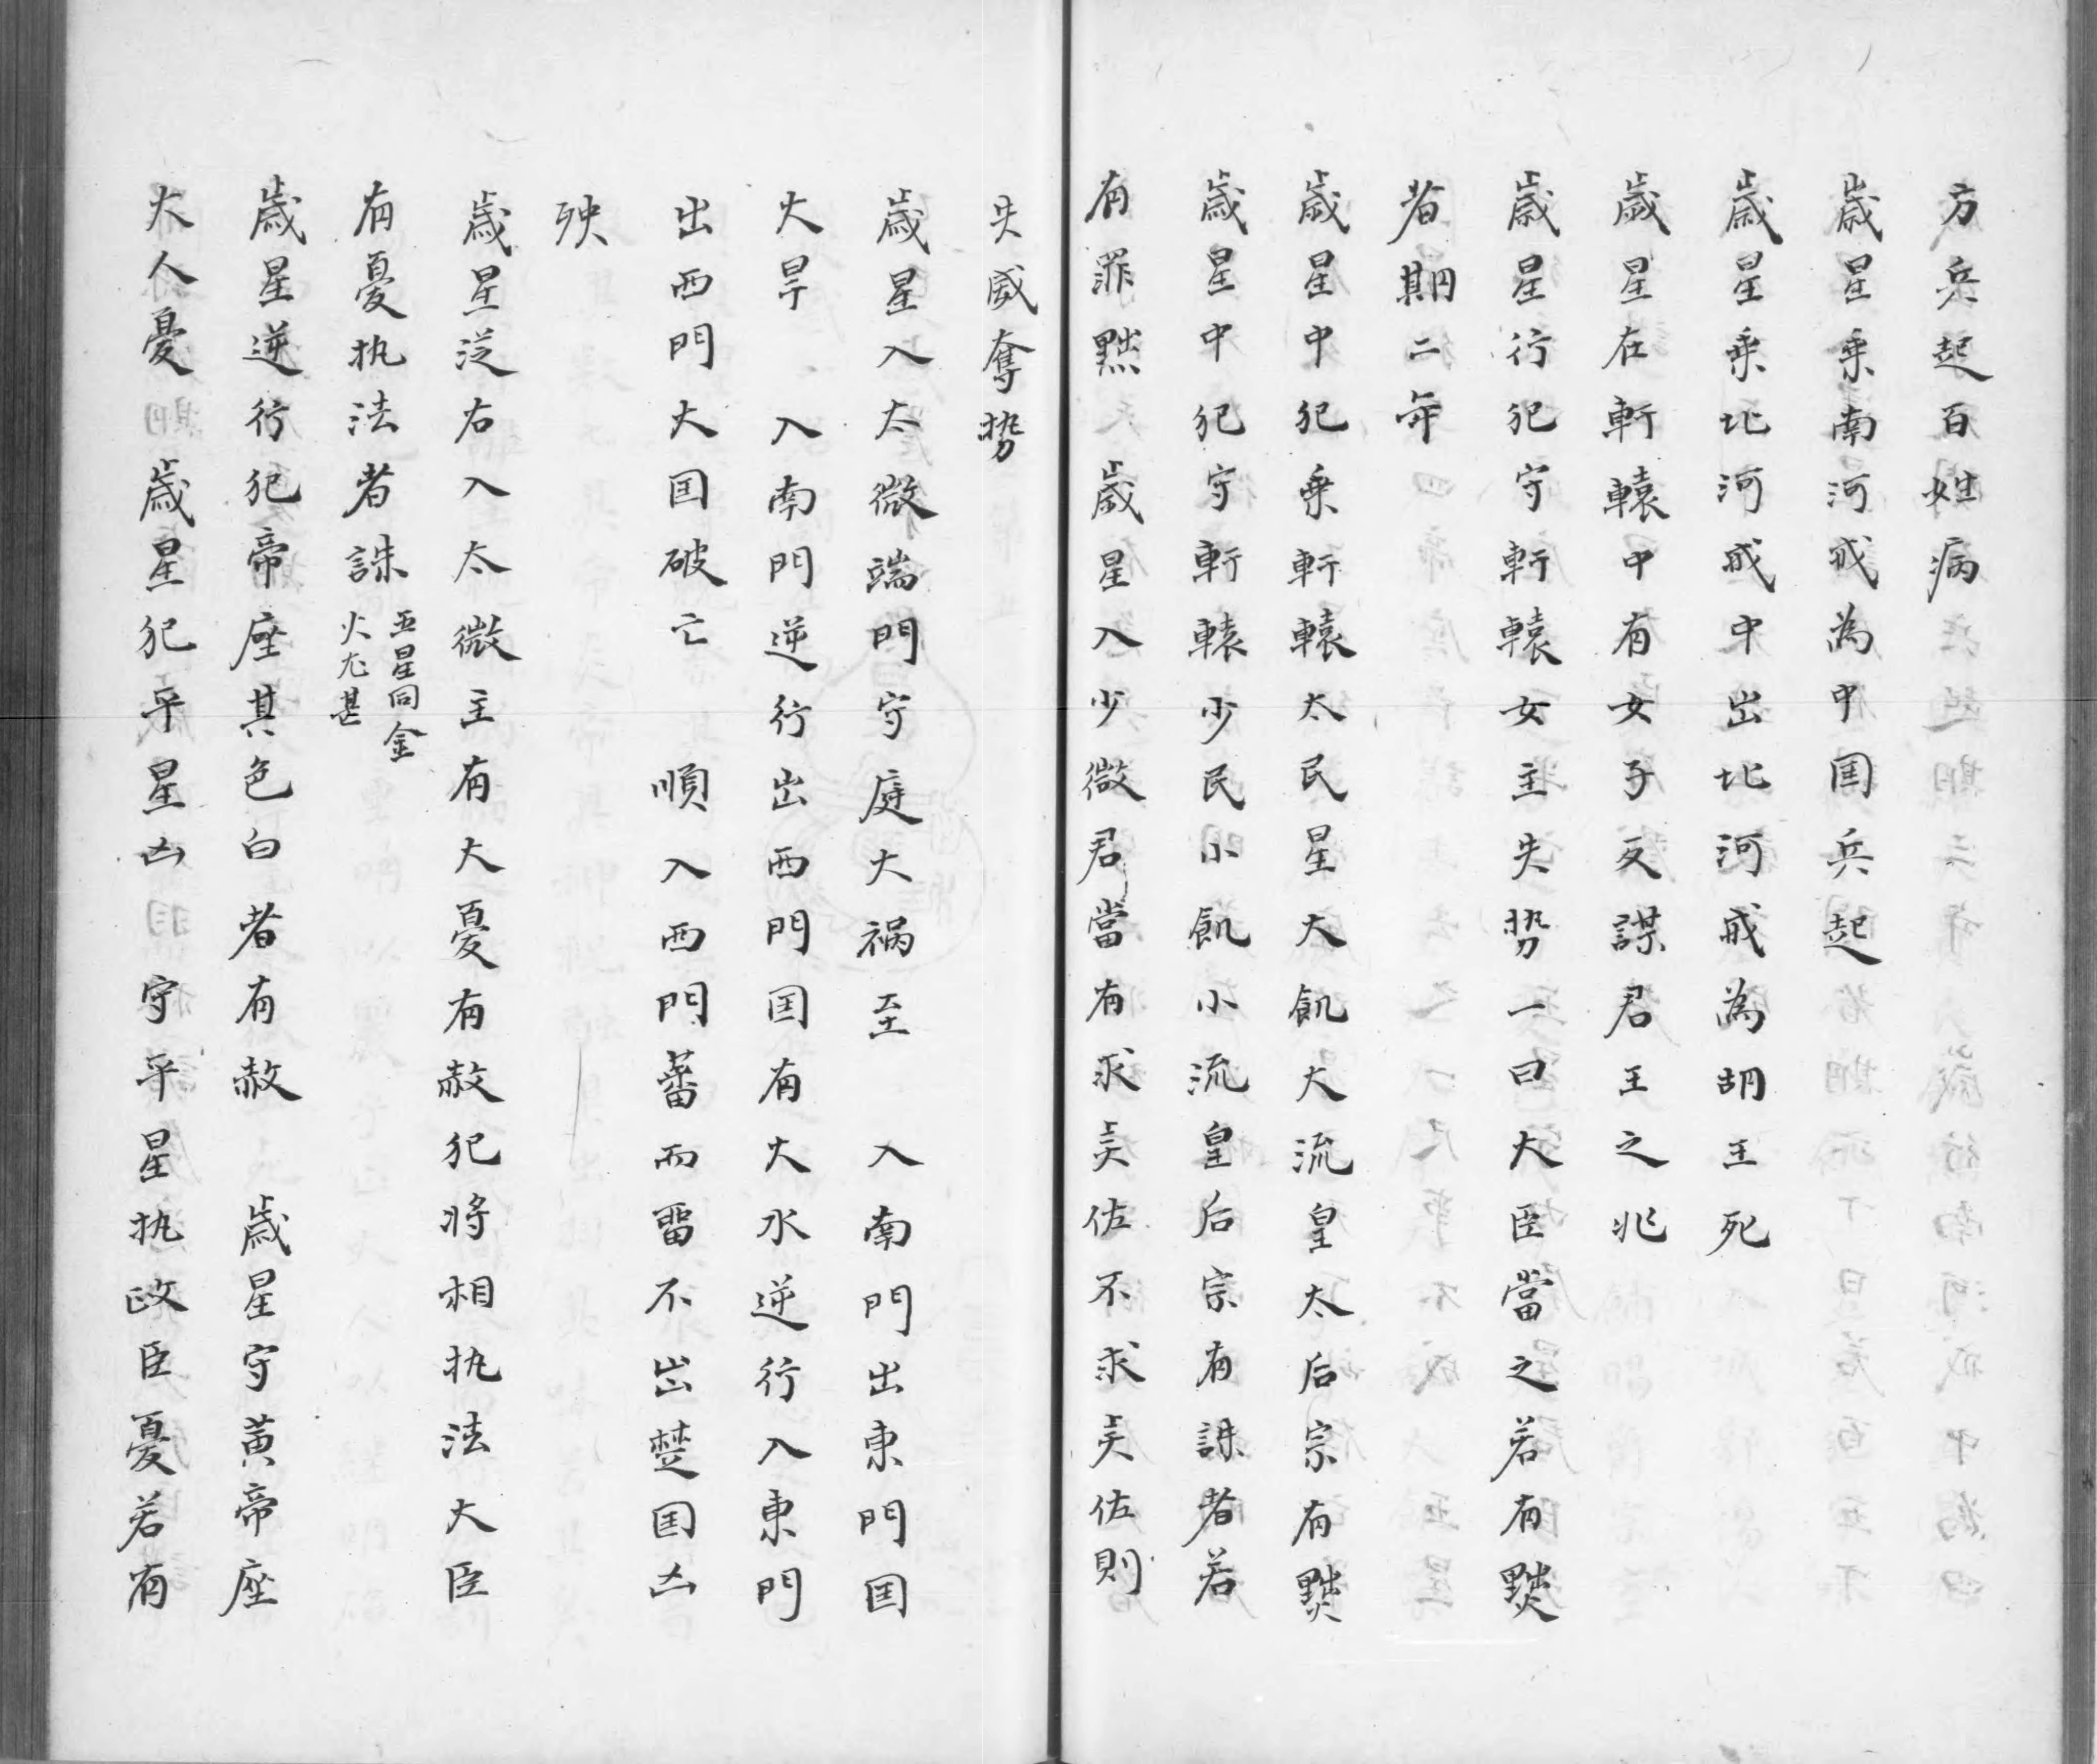 方兵起百姓病
歲星乗南河戒為中囯兵起
歲星乗北河戒中出北河戒為胡王死
歲星在軒轅中有女子反謀君王之兆
歲星行犯守軒轅女主失势一曰大臣當之若有黜
者期二年
歲星中犯乗軒轅太民星大飢大流皇太后宗有黜
歲星中犯守軒轅少民小飢小流皇后宗有誅者若
有罪黜 歲星入少微君當有求矣佐不求矣佐則
失威奪势
歲星入太微端門守庭大禍至 入南門出東門囯
大旱 入南門逆行出西門囯有大水逆行入東門
出西門大囯破亡 順入西門蕃而留不出楚囯凶
殃
歲星従右入太微主有大憂有赦犯将相执法大臣
有憂执法者誅五星同金
火尤甚
歲星逆行犯帝座其色白者有赦 歲星守黄帝座
大人憂 歲星犯平星凶 守平星执政臣憂若有